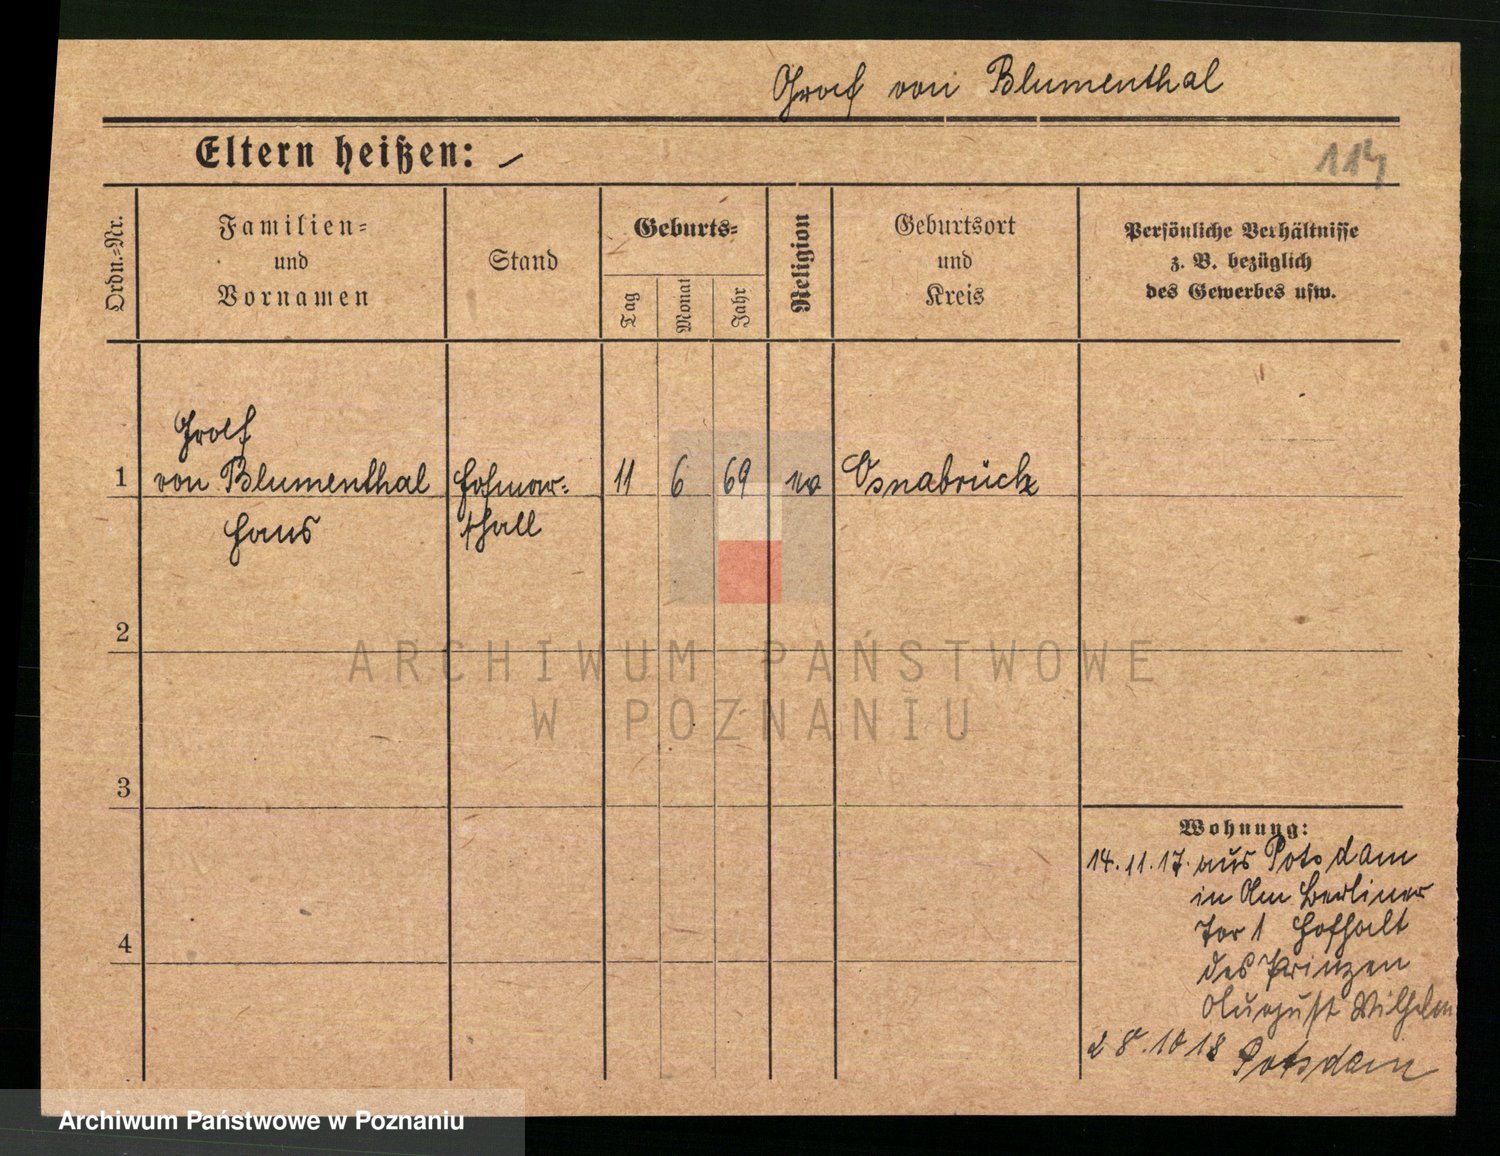 Graf von Blumenthal
Eltern heißen: –
114
Ordn.-Nr.
Familien-
und
Vornamen
Stand
Geburts-
Tag
Monat
Jahr
Religion
Geburtsort
und
Kreis
Persönliche Verhältnisse
z. B. bezüglich
des Gewerbes usw.
Graf
1 von Blumenthal Hofmar- 11 6 69 ev Osnabrück
Hans schall
2
ARCHIWUM PAŃSTWOWE
W POZNANIU
3
Wohnung:
14.11.17. aus Potsdam
in Am Berliner
Tor 1 Hofhalt
des Prinzen
August Wilhelm
4
28.10 18 Potsdam
Archiwum Państwowe w Poznaniu